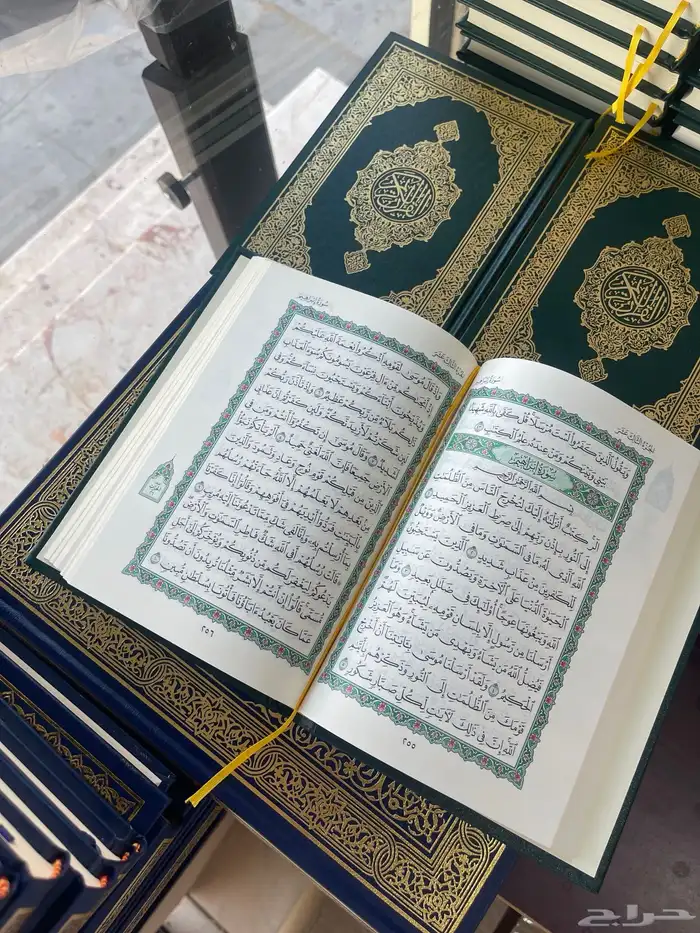 سُورَةُ إِبْرَاهِيم
الجُزْءُ الثَّالِثَ عَشَرَ
وَيَقُولُ ٱلَّذِينَ كَفَرُوا۟ لَسْتَ مُرْسَلًا ۚ قُلْ كَفَىٰ بِٱللَّهِ شَهِيدًۢا
بَيْنِى وَبَيْنَكُمْ وَمَنْ عِندَهُۥ عِلْمُ ٱلْكِتَٰبِ ٤٣
سُورَةُ إِبْرَاهِيمَ
بِسْمِ ٱللَّهِ ٱلرَّحْمَٰنِ ٱلرَّحِيمِ
الٓر ۚ كِتَٰبٌ أَنزَلْنَٰهُ إِلَيْكَ لِتُخْرِجَ ٱلنَّاسَ مِنَ ٱلظُّلُمَٰتِ
إِلَى ٱلنُّورِ بِإِذْنِ رَبِّهِمْ إِلَىٰ صِرَٰطِ ٱلْعَزِيزِ ٱلْحَمِيدِ ١
ٱللَّهِ ٱلَّذِى لَهُۥ مَا فِى ٱلسَّمَٰوَٰتِ وَمَا فِى ٱلْأَرْضِ ۗ وَوَيْلٌ
لِّلْكَٰفِرِينَ مِنْ عَذَابٍ شَدِيدٍ ٢ ٱلَّذِينَ يَسْتَحِبُّونَ
ٱلْحَيَوٰةَ ٱلدُّنْيَا عَلَى ٱلْءَاخِرَةِ وَيَصُدُّونَ عَن سَبِيلِ
ٱللَّهِ وَيَبْغُونَهَا عِوَجًا ۚ أُو۟لَٰٓئِكَ فِى ضَلَٰلٍۭ بَعِيدٍ ٣ وَمَآ
أَرْسَلْنَا مِن رَّسُولٍ إِلَّا بِلِسَانِ قَوْمِهِۦ لِيُبَيِّنَ لَهُمْ ۖ
فَيُضِلُّ ٱللَّهُ مَن يَشَآءُ وَيَهْدِى مَن يَشَآءُ ۚ وَهُوَ ٱلْعَزِيزُ
ٱلْحَكِيمُ ٤ وَلَقَدْ أَرْسَلْنَا مُوسَىٰ بِـَٔايَٰتِنَآ أَنْ أَخْرِجْ
قَوْمَكَ مِنَ ٱلظُّلُمَٰتِ إِلَى ٱلنُّورِ وَذَكِّرْهُم بِأَيَّىٰمِ
ٱللَّهِ ۚ إِنَّ فِى ذَٰلِكَ لَءَايَٰتٍ لِّكُلِّ صَبَّارٍ شَكُورٍ ٥
٢٥٥
الجُزْءُ الثَّالِثَ عَشَرَ
سُورَةُ إِبْرَاهِيم
وَإِذْ قَالَ مُوسَىٰ لِقَوْمِهِ ٱذْكُرُوا۟ نِعْمَةَ ٱللَّهِ عَلَيْكُمْ
إِذْ أَنجَىٰكُم مِّنْ ءَالِ فِرْعَوْنَ يَسُومُونَكُمْ سُوٓءَ ٱلْعَذَابِ
وَيُذَبِّحُونَ أَبْنَآءَكُمْ وَيَسْتَحْيُونَ نِسَآءَكُمْ ۚ وَفِى
ذَٰلِكُم بَلَآءٌ مِّن رَّبِّكُمْ عَظِيمٌ ٦ وَإِذْ تَأَذَّنَ رَبُّكُمْ
لَئِن شَكَرْتُمْ لَأَزِيدَنَّكُمْ ۖ وَلَئِن كَفَرْتُمْ إِنَّ عَذَابِى
لَشَدِيدٌ ٧ وَقَالَ مُوسَىٰٓ إِن تَكْفُرُوٓا۟ أَنتُمْ وَمَن فِى
ٱلْأَرْضِ جَمِيعًا فَإِنَّ ٱللَّهَ لَغَنِىٌّ حَمِيدٌ ٨ أَلَمْ يَأْتِكُمْ نَبَؤُا۟
ٱلَّذِينَ مِن قَبْلِكُمْ قَوْمِ نُوحٍ وَعَادٍ وَثَمُودَ ۛ وَٱلَّذِينَ
مِنۢ بَعْدِهِمْ ۛ لَا يَعْلَمُهُمْ إِلَّا ٱللَّهُ ۚ جَآءَتْهُمْ رُسُلُهُم
بِٱلْبَيِّنَٰتِ فَرَدُّوٓا۟ أَيْدِيَهُمْ فِىٓ أَفْوَٰهِهِمْ وَقَالُوٓا۟ إِنَّا كَفَرْنَا
بِمَآ أُرْسِلْتُم بِهِۦ وَإِنَّا لَفِى شَكٍّ مِّمَّا تَدْعُونَنَآ إِلَيْهِ مُرِيبٍ ٩
قَالَتْ رُسُلُهُمْ أَفِى ٱللَّهِ شَكٌّ فَاطِرِ ٱلسَّمَٰوَٰتِ وَٱلْأَرْضِ ۖ
يَدْعُوكُمْ لِيَغْفِرَ لَكُم مِّن ذُنُوبِكُمْ وَيُؤَخِّرَكُمْ إِلَىٰٓ أَجَلٍ
مُّسَمًّى ۚ قَالُوٓا۟ إِنْ أَنتُمْ إِلَّا بَشَرٌ مِّثْلُنَا تُرِيدُونَ أَن تَصُدُّونَا
عَمَّا كَانَ يَعْبُدُ ءَابَآؤُنَا فَأْتُونَا بِسُلْطَٰنٍ مُّبِينٍ ١٠
٢٥٦
حراج